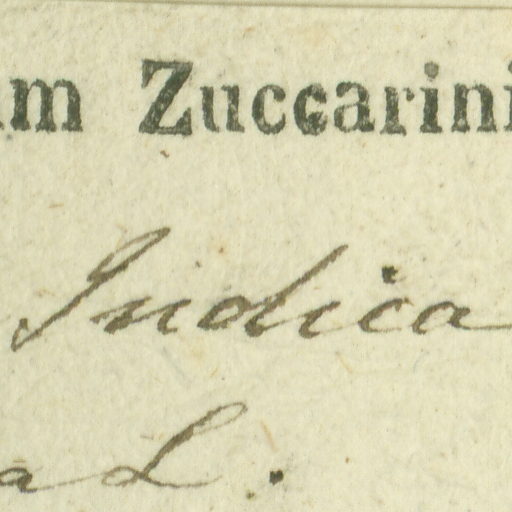 um Zuccarini
Indica
a L.